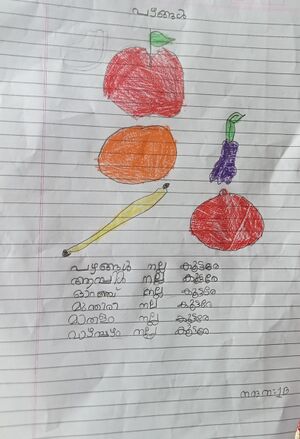 പഴങ്ങൾ
പഴങ്ങൾ നല്ല കൂട്ടരേ
ആപ്പിൾ നല്ല കൂട്ടരേ
ഓറഞ്ച് നല്ല കൂട്ടരേ
മുന്തിരി നല്ല കൂട്ടരേ
മാതളം നല്ല കൂട്ടരേ
വാഴപ്പഴം നല്ല കൂട്ടരേ